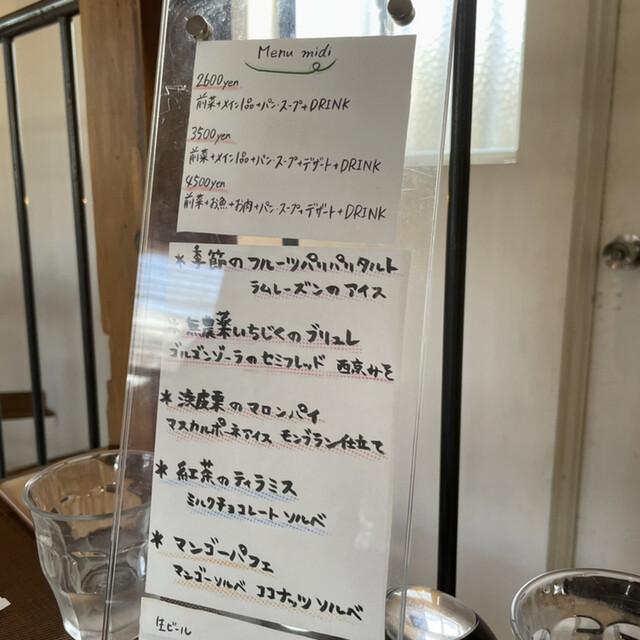 Menu midi
2600yen
前菜+メイン1品+パン・スープ+DRINK
3500yen
前菜+メイン1品+パン・スープ+デザート+DRINK
4500yen
前菜+お魚+お肉+パン・スープ+デザート+DRINK
* 季節のフルーツパリパリタルト
ラムレーズンのアイス
* 無農薬いちじくのブリュレ
ゴルゴンゾーラのセミフレッド 西京みそ
* 渋皮栗のマロンパイ
マスカルポーネアイス モンブラン仕立て
* 紅茶のティラミス
ミルクチョコレートソルベ
* マンゴーパフェ
マンゴーソルベ ココナッツソルベ
生ビール